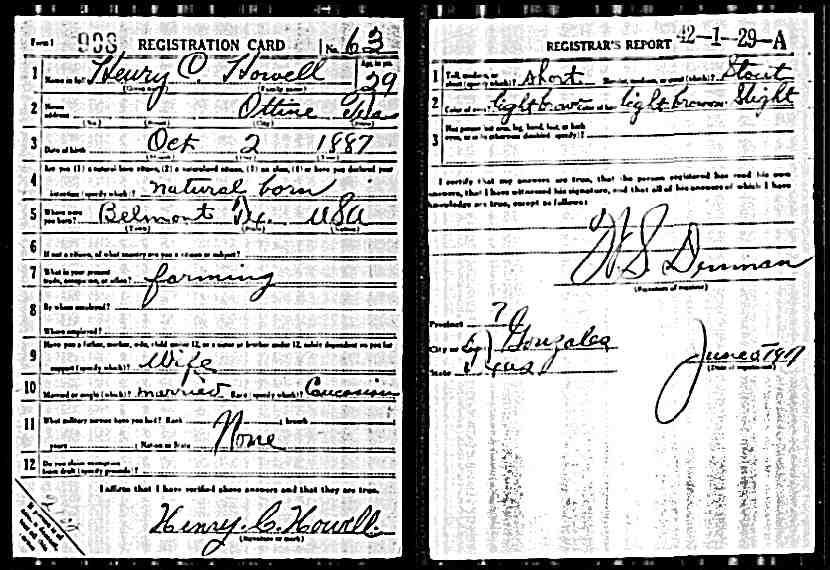 Form 1 903 REGISTRATION CARD No. 63
1 Name in full Henry C Howell Age, in yrs. 29
(Given name) (Family name)
2 Home address Ottine Texas
(No.) (Street) (City) (State)
3 Date of birth Oct 2 1887
(Month) (Day) (Year)
Are you (1) a natural born citizen, (2) a naturalized citizen, (3) an alien, (4) or have you declared your
4 intention (specify which)? natural born
5 Where were you born? Belmont Tex. USA
(Town) (State) (Nation)
6 If not a citizen, of what country are you a citizen or subject?
7 What is your present trade, occupation, or office? farming
8 By whom employed?
Where employed?
9 Have you a father, mother, wife, child under 12, or a sister or brother under 12, solely dependent on you for
support (specify which)? Wife
10 Married or single (which)? married Race (specify which)? Caucasian
11 What military service have you had? Rank branch
years Nation or State None
12 Do you claim exemption from draft (specify grounds)?
I affirm that I have verified above answers and that they are true.
Henry. C. Howell.
(Signature or mark)
REGISTRAR'S REPORT 42-1-29-A
1 Tall, medium, or short (specify which)? Short Slender, medium, or stout (which)? Stout
2 Color of eyes? light brown Color of hair? light brown Bald? Slight
3 Has person lost arm, leg, hand, foot, or both eyes, or is he otherwise disabled (specify)?
I certify that my answers are true, that the person registered has read his own
answers, that I have witnessed his signature, and that all of his answers of which I have
knowledge are true, except as follows:
W. S. Denman
(Signature of registrar)
Precinct 7
City or County Gonzales
State Texas June 5 1917
(Date of registration)